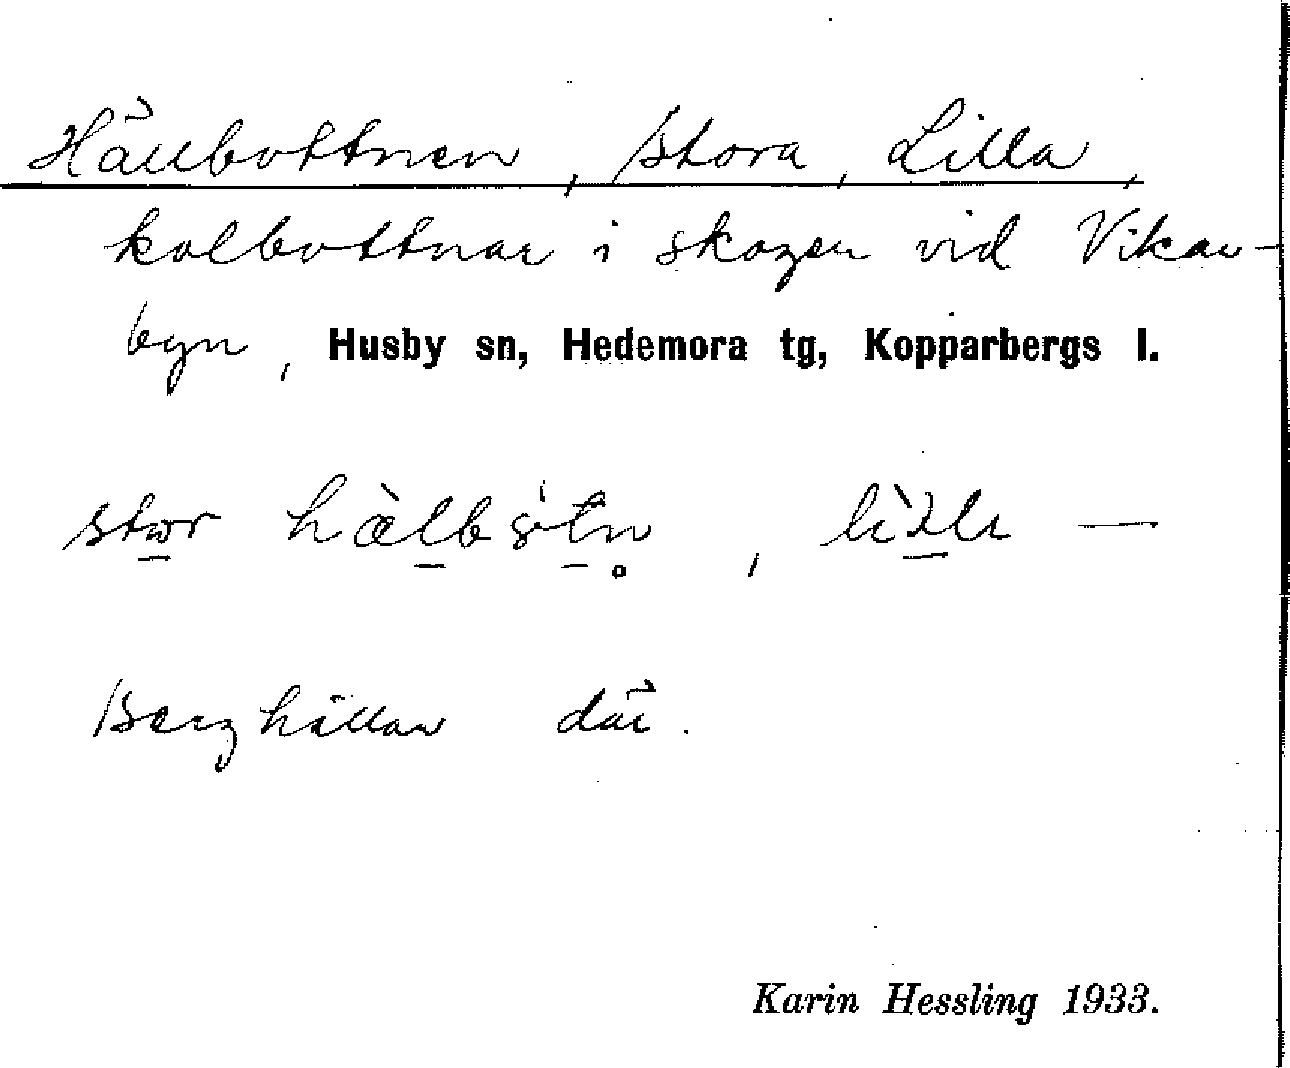 Hällbottnen, Stora, Lilla,
kolbottnar i skogen vid Vikar-
byn, Husby sn, Hedemora tg, Kopparbergs l.
stor hælb
Berghällar där.
Karin Hessling 1933.